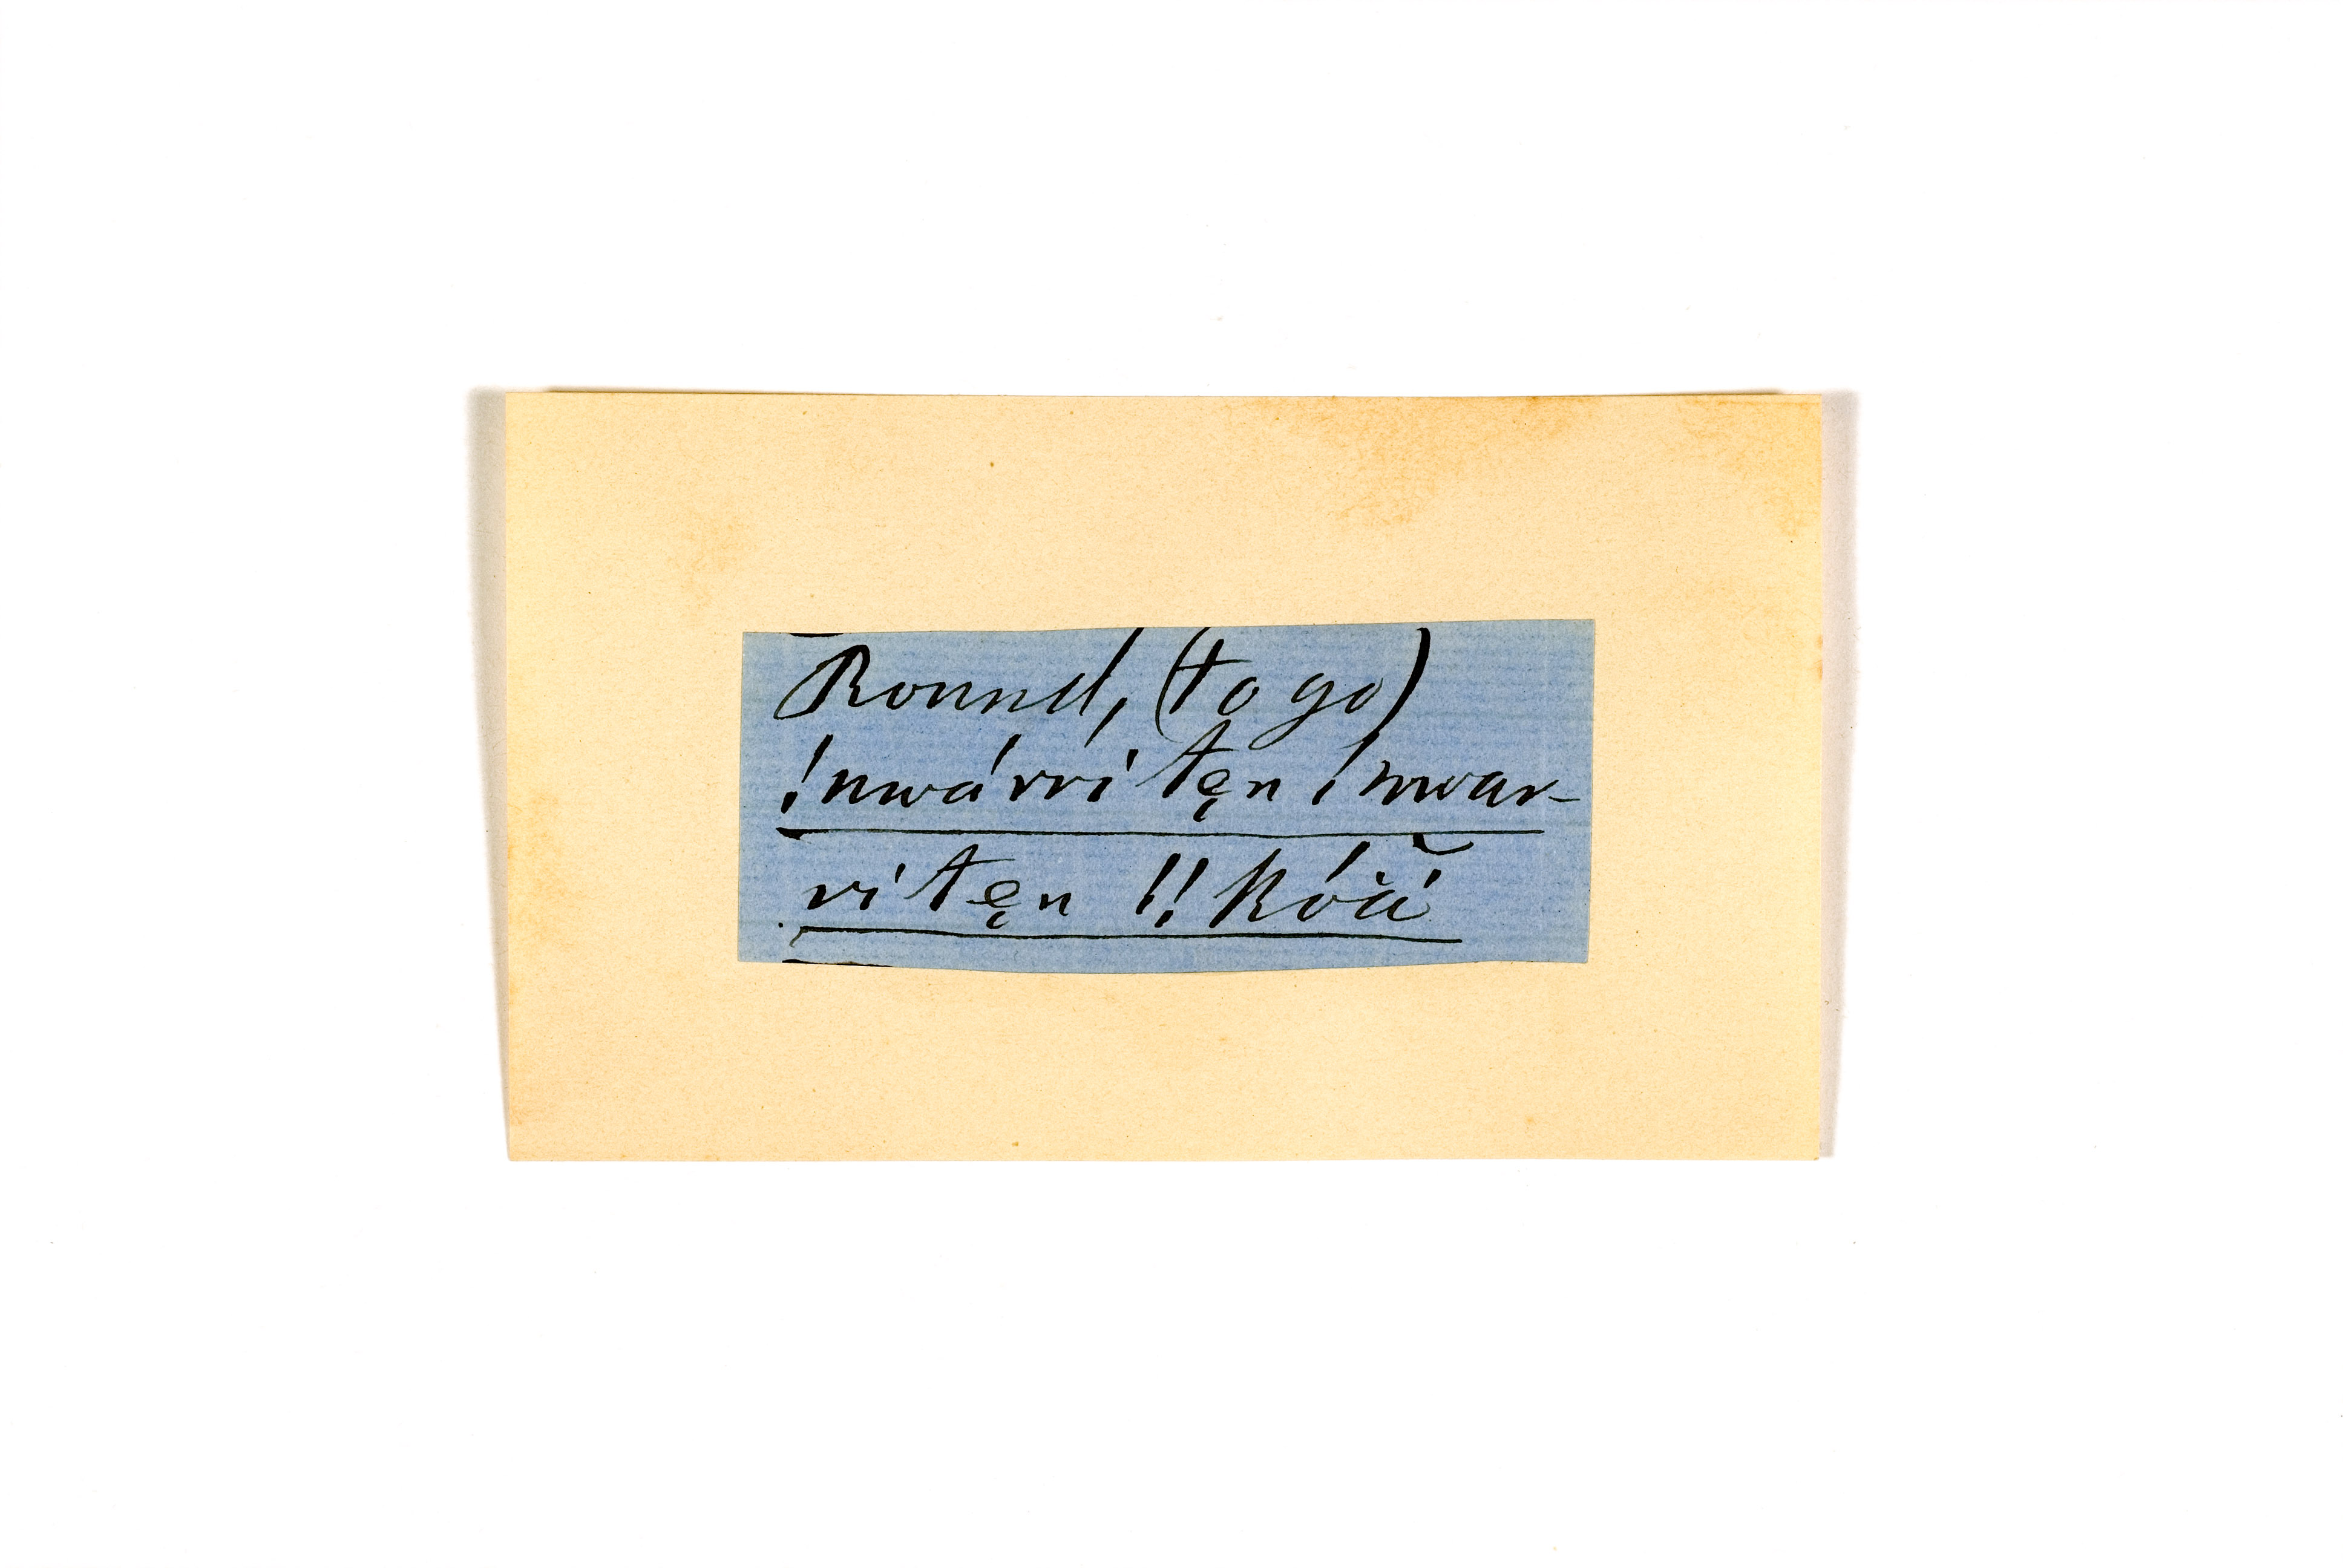 Round, (to go)
!nwárri tẹn !nwar-
ri tẹn !! kóä́